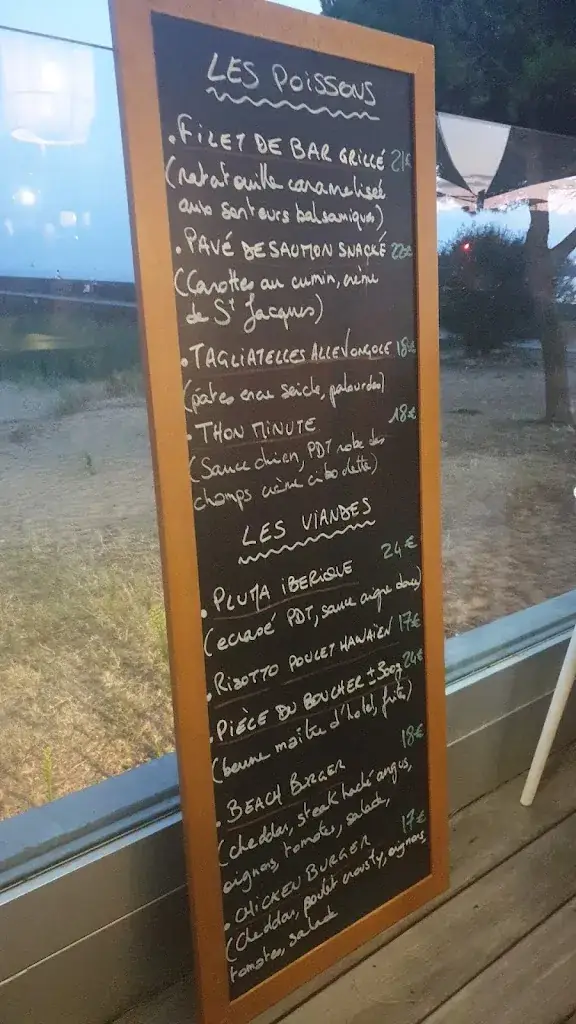 LES POISSONS
• FILET DE BAR GRILLÉ 21€
(ratatouille caramelisée
aux senteurs balsamiques)
• PAVÉ DE SAUMON SNACKÉ 22€
(Carottes au cumin, crème
de St Jacques)
• TAGLIATELLES ALLE VONGOLE 18€
(pâtes encre seiche, palourdes)
• THON MINUTE 18€
(Sauce chien, PDT robe des
champs crème ciboulette)
LES VIANDES
• PLUMA IBERIQUE 24€
(ecrasé PDT, sauce aigre douce)
• RISOTTO POULET HAWAÏEN 17€
• PIÈCE DU BOUCHER ± 300g 24€
(beurre maître d'hotel, frite)
• BEACH BURGER 18€
(cheddar, steak haché angus,
oignons, tomates, salade,
• CHICKEN BURGER 17€
(Cheddar, poulet crousty, oignons,
tomates, salade